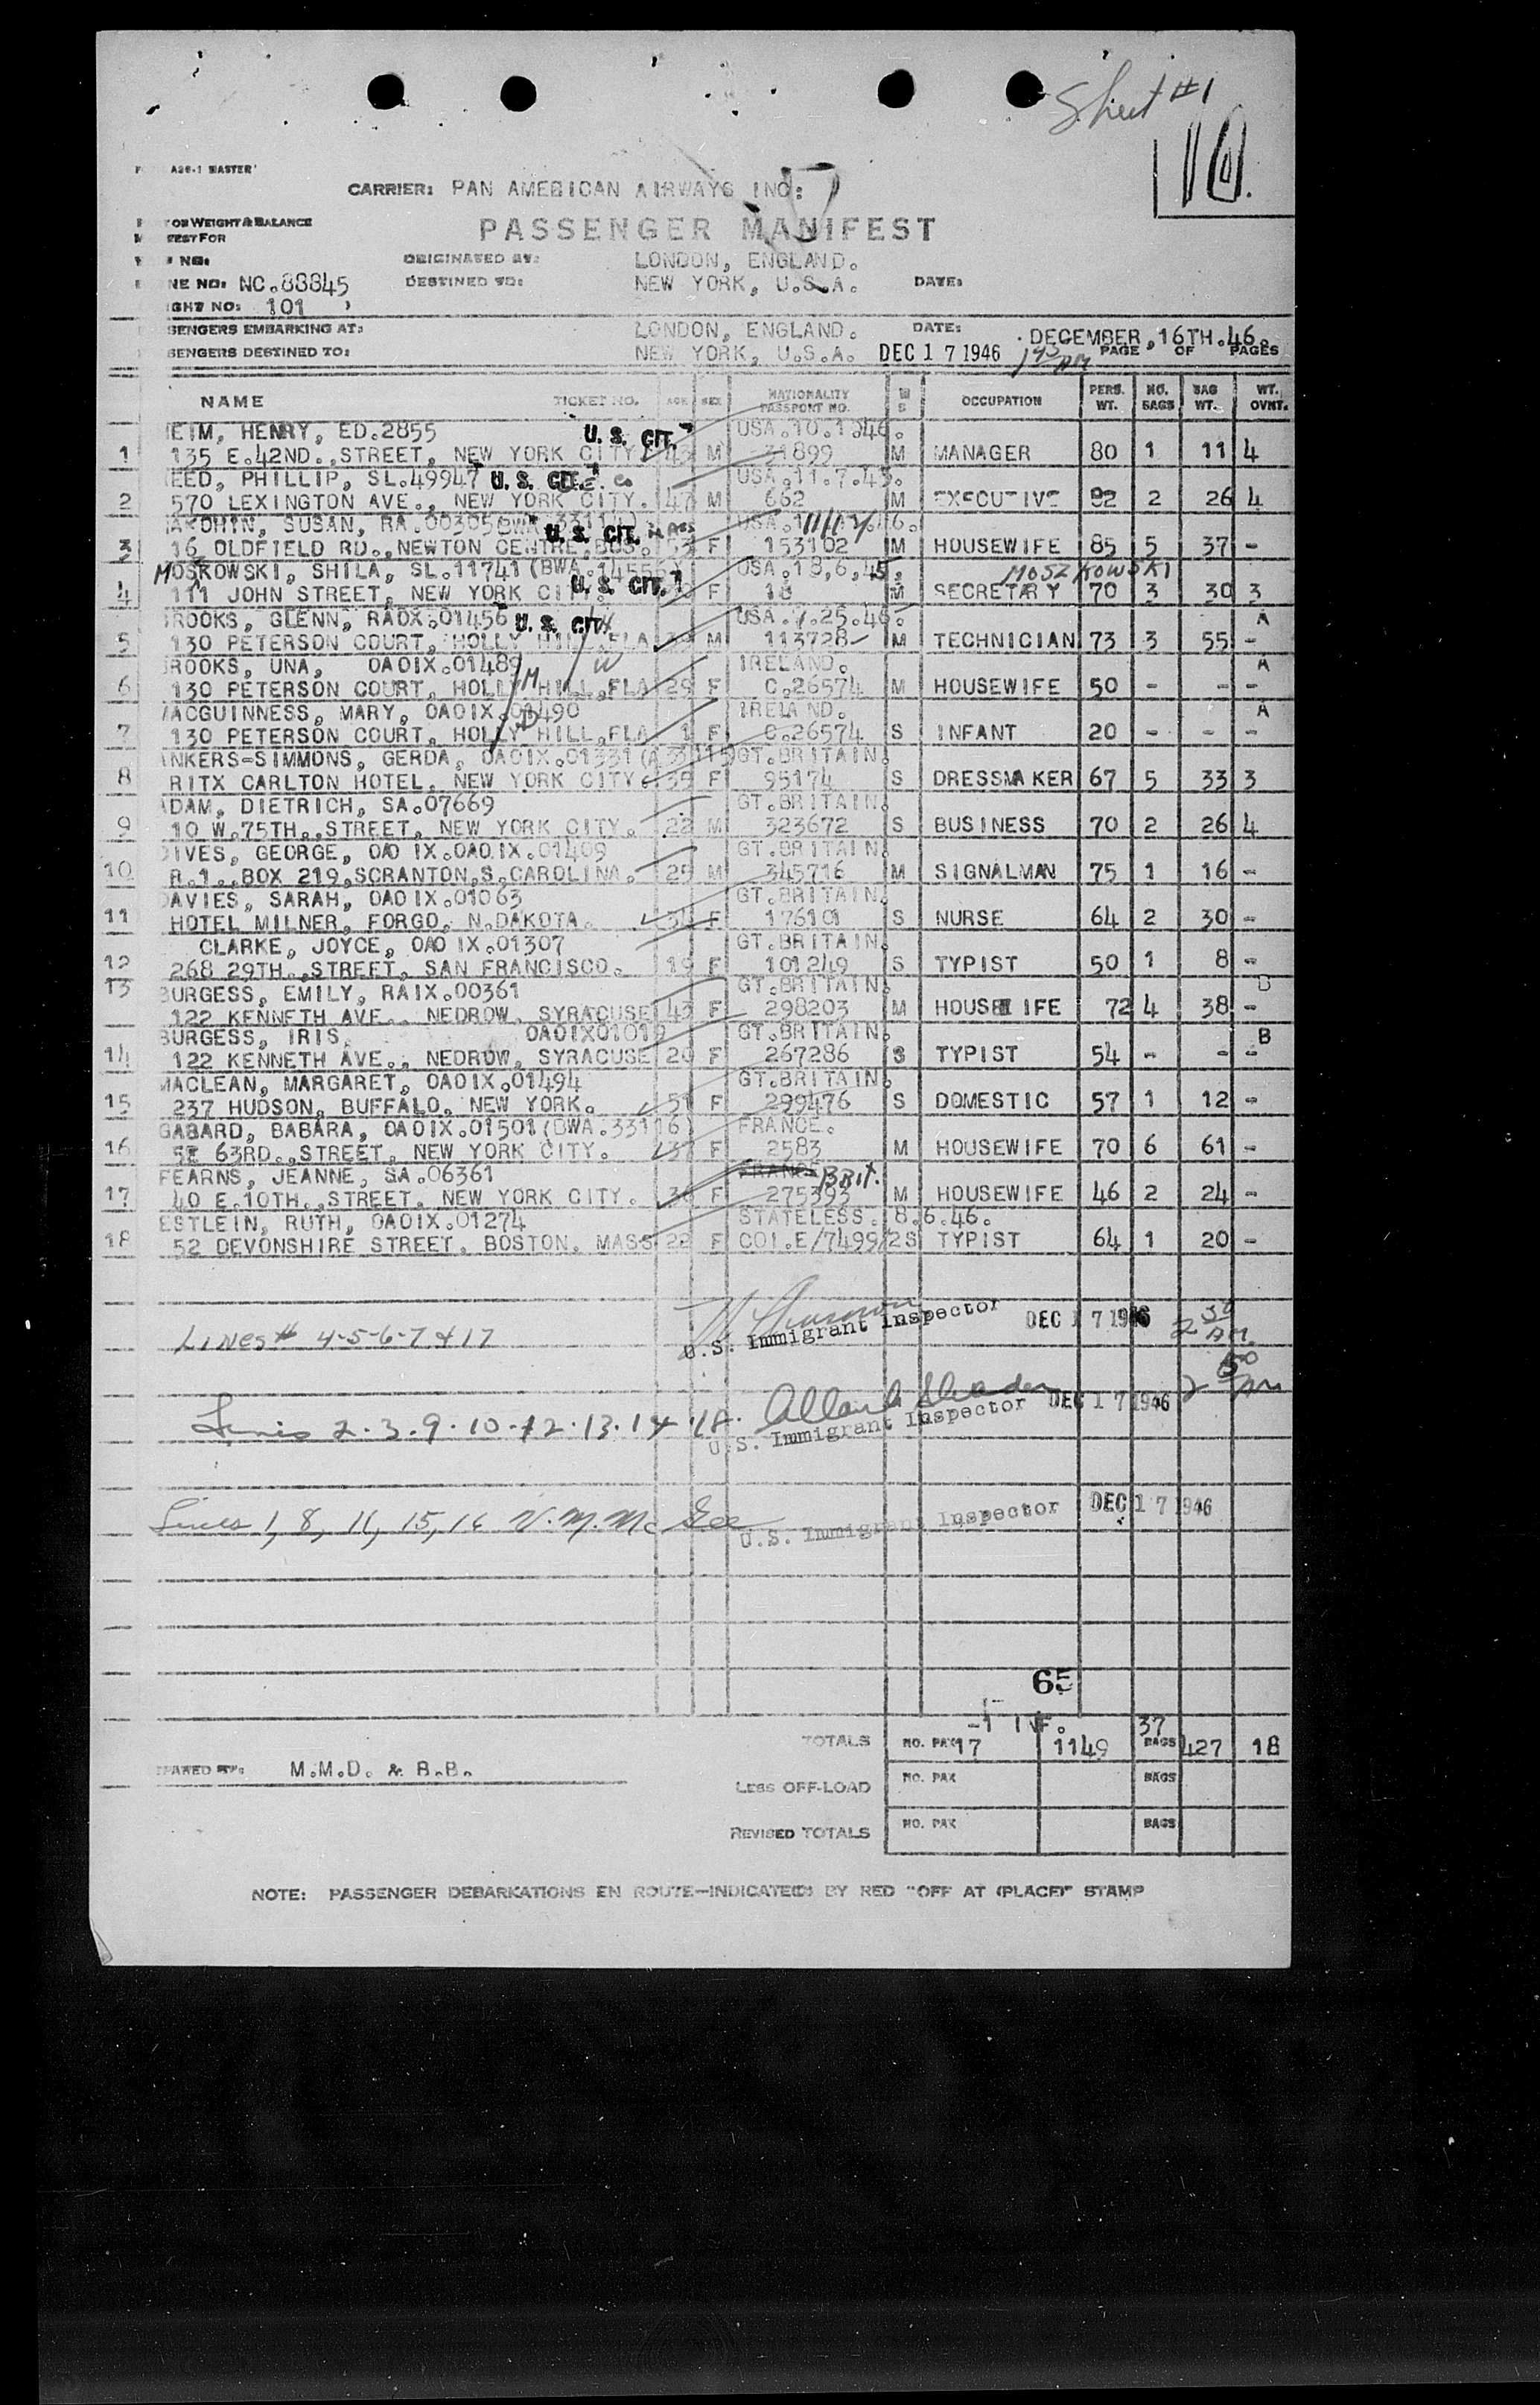 Sheet #1
101.
ASR-1 MASTER
CARRIER: PAN AMERICAN AIRWAYS INC:
FOR WEIGHT & BALANCE
PASSENGER MANIFEST
FEST FOR
NO: ORIGINATED AT: LONDON, ENGLAND.
NE NO: NC.88845 DESTINED TO: NEW YORK, U.S.A. DATE:
GHT NO: 101
SENGERS EMBARKING AT: LONDON, ENGLAND. DATE: DECEMBER,16TH.46.
SENGERS DESTINED TO: NEW YORK, U.S.A. DEC 17 1946 1 45 AM PAGE OF PAGES
NAME TICKET NO. AGE SEX NATIONALITY PASSPORT NO. M S OCCUPATION PERS. WT. NO. BAGS BAG WT. WT. OVNT.
EIM, HENRY, ED.2855 U. S. CIT. USA.10.1.46.
1 135 E.42ND.,STREET, NEW YORK CITY. 43 M 31899 M MANAGER 80 1 11 4
EED, PHILLIP, SL.49947 U. S. CIT. USA.11.7.45.
2 570 LEXINGTON AVE., NEW YORK CITY. 47 M 662 M EXECUTIVE 82 2 26 4
SUSAN, RA.00305 U. S. CIT. MASS
3 16 OLDFIELD RD.,NEWTON CENTRE, 53 F 153102 M HOUSEWIFE 85 5 37 -
MOSKOWSKI, SHILA, SL.11741 (BWA.14556) USA.18.6.45. MOSZKOWSKI
4 111 JOHN STREET, NEW YORK U. S. CIT. F 18 M SECRETARY 70 3 30 3
ROOKS, GLENN, RADX.01456 U. S. CIT. USA.7.25.46. A
5 130 PETERSON COURT, HOLLY HILL,FLA M 113728 M TECHNICIAN 73 3 55 -
ROOKS, UNA, OAOIX.01489 M W IRELAND. A
6 130 PETERSON COURT, HOLLY HILL,FLA 29 F C.26574 M HOUSEWIFE 50 - - -
MACGUINNESS, MARY, OAOIX.01490 D IRELAND. A
7 130 PETERSON COURT, HOLLY HILL,FLA 1 F C.26574 S INFANT 20 - - -
ANKERS-SIMMONS, GERDA, OAOIX.01331 GT.BRITAIN.
8 RITX CARLTON HOTEL, NEW YORK CITY. 35 F 95174 S DRESSMAKER 67 5 33 3
ADAM, DIETRICH, SA.07669 GT.BRITAIN.
9 10 W.75TH.,STREET, NEW YORK CITY. 22 M 323672 S BUSINESS 70 2 26 4
DIVES, GEORGE, OAO IX.OAO.IX.01409 GT.BRITAIN.
10 R.1.,BOX 219,SCRANTON,S.CAROLINA. 25 M 345716 M SIGNALMAN 75 1 16 -
DAVIES, SARAH, OAOIX.01063 GT.BRITAIN.
11 HOTEL MILNER, FORGO, N.DAKOTA. 34 F 176101 S NURSE 64 2 30 -
CLARKE, JOYCE, OAO IX.01307 GT.BRITAIN.
12 268 29TH.,STREET, SAN FRANCISCO. 19 F 101249 S TYPIST 50 1 8 -
13 BURGESS, EMILY, RAIX.00361 GT.BRITAIN. B
122 KENNETH AVE., NEDROW, SYRACUSE 43 F 298203 M HOUSEWIFE 72 4 38 -
BURGESS, IRIS, OAOIX01019 GT.BRITAIN. B
14 122 KENNETH AVE., NEDROW, SYRACUSE 20 F 267286 S TYPIST 54 - - -
MACLEAN, MARGARET, OAOIX.01494 GT.BRITAIN.
15 237 HUDSON, BUFFALO, NEW YORK. 51 F 299476 S DOMESTIC 57 1 12 -
GABARD, BABARA, OAOIX.01501(BWA.33116) FRANCE.
16 5E 63RD.,STREET, NEW YORK CITY. 37 F 2583 M HOUSEWIFE 70 6 61 -
FEARNS, JEANNE, SA.06361 FRANCE BRIT.
17 40 E.10TH.,STREET, NEW YORK CITY. 36 F 275393 M HOUSEWIFE 46 2 24 -
ESTLEIN, RUTH, OAOIX.01274 STATELESS. 8.6.46.
18 52 DEVONSHIRE STREET, BOSTON, MASS 22 F COI.E/7499/2 S TYPIST 64 1 20 -
Lines # 4-5-6-7 & 17 U.S. Immigrant Inspector DEC 17 1946 2 30 AM.
Lines 2.3.9.10.12.13.14 18. U.S. Immigrant Inspector DEC 17 1946 2 50 AM
Lines 1, 8, 11, 15, 16 V.M. McGee U.S. Immigrant Inspector DEC 17 1946
65
-1 INF. 37
TOTALS NO. PAX 17 1149 BAGS 427 18
PARED BY: M.M.D. & B.B.
LESS OFF-LOAD NO. PAX BAGS
REVISED TOTALS NO. PAX BAGS
NOTE: PASSENGER DEBARKATIONS EN ROUTE—INDICATED BY RED "OFF AT (PLACE)" STAMP